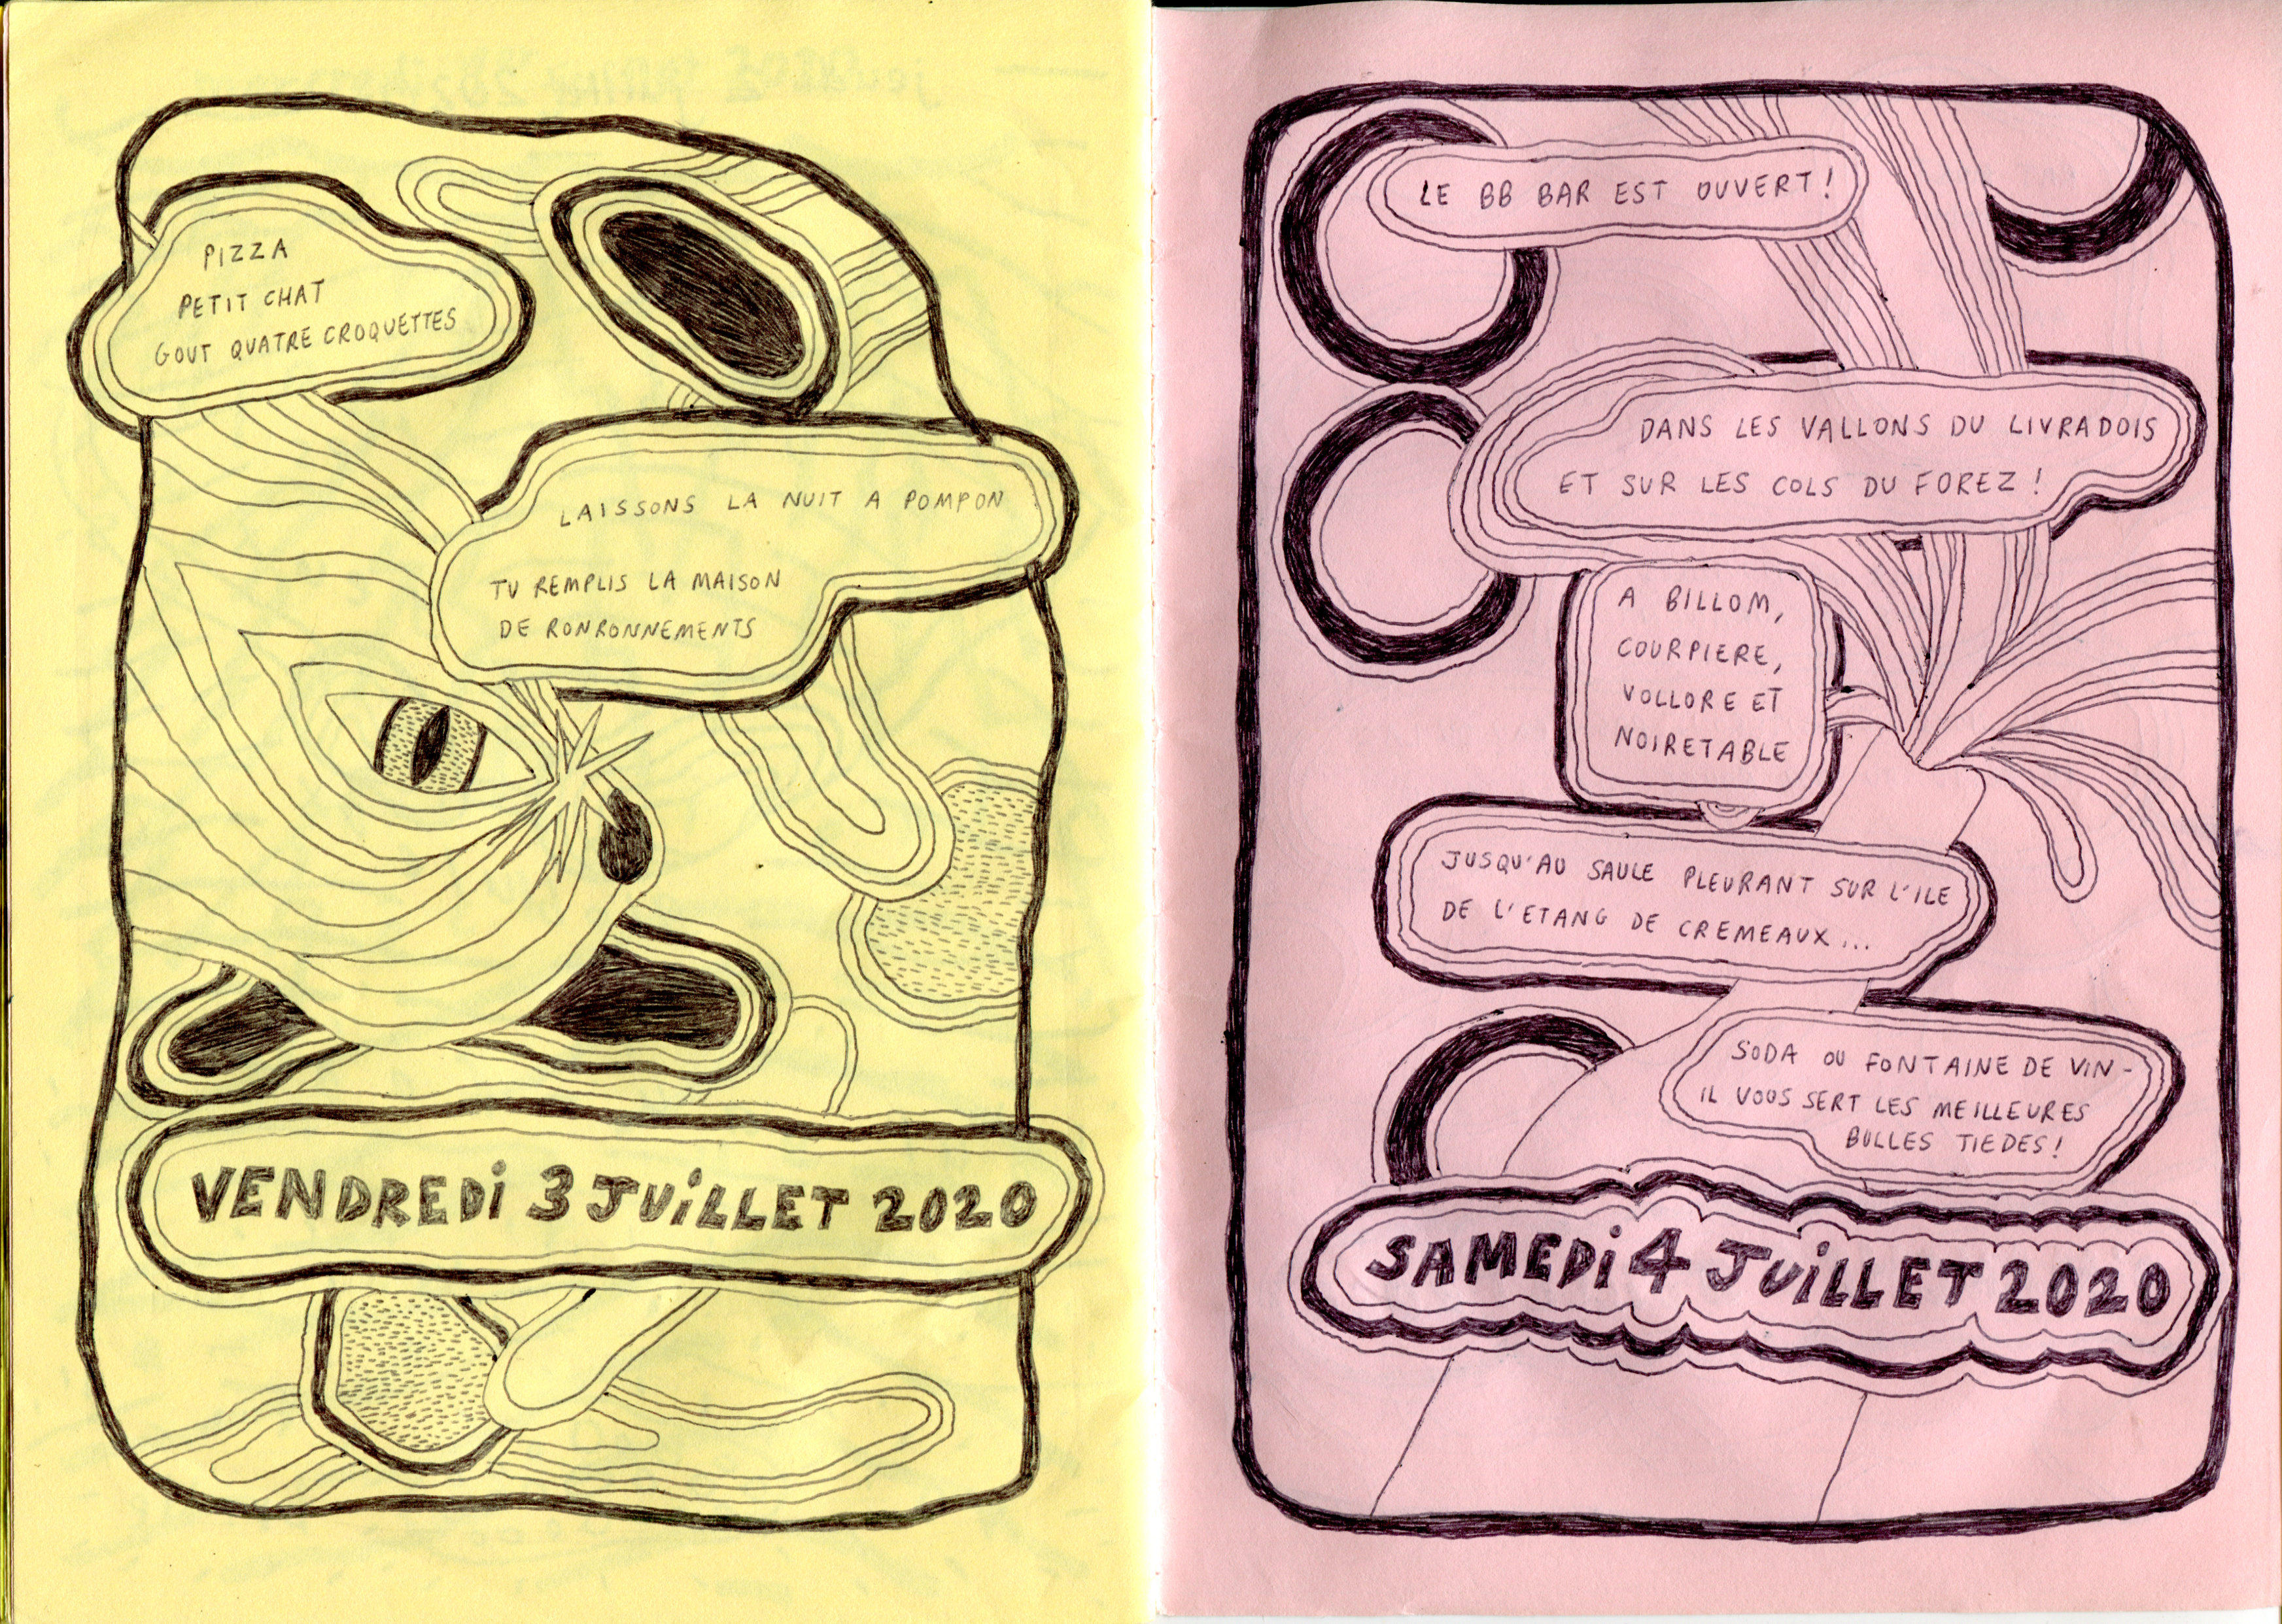 PIZZA
PETIT CHAT
GOUT QUATRE CROQUETTES
LAISSONS LA NUIT A POMPON
TU REMPLIS LA MAISON
DE RONRONNEMENTS
VENDREDi 3 JUiLLET 2020
LE BB BAR EST OUVERT!
DANS LES VALLONS DU LIVRADOIS
ET SUR LES COLS DU FOREZ !
A BILLOM,
COURPIERE,
VOLLORE ET
NOIRETABLE
JUSQU'AU SAULE PLEURANT SUR L'ILE
DE L'ETANG DE CREMEAUX...
SODA OU FONTAINE DE VIN -
IL VOUS SERT LES MEILLEURES
BULLES TIEDES!
SAMEDi 4 JUiLLET 2020